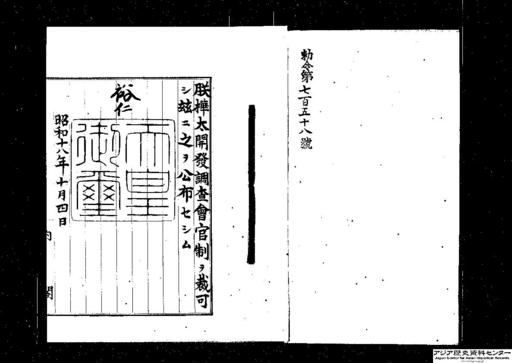 勅令第七百五十八號
朕樺太開發調査會官制ヲ裁可
シ茲ニ之ヲ公布セシム
裕仁
天皇御璽
昭和十八年十月四日
内閣
アジア歴史資料センター
Japan Center for Asian Historical Records